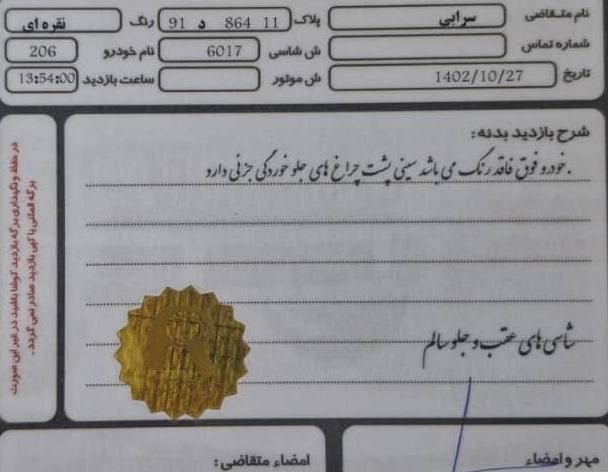 نام متقاضی سرابی پلاک 11 864 د 91 رنگ نقره ای
شماره تماس ش شاسی 6017 نام خودرو 206
تاریخ 1402/10/27 ش موتور ساعت بازدید 13:54:00
شرح بازدید بدنه:
.خودرو فوق فاقد رنگ می باشد سینی پشت چراغ های جلو خوردگی جزئی دارد
شاسی های عقب و جلو سالم
در حفظ و نگهداری برگه بازدید کوشا باشید در غیر این صورت
برگه المثنی یا کپی بازدید صادر نمی گردد.
مهر و امضاء امضاء متقاضی: